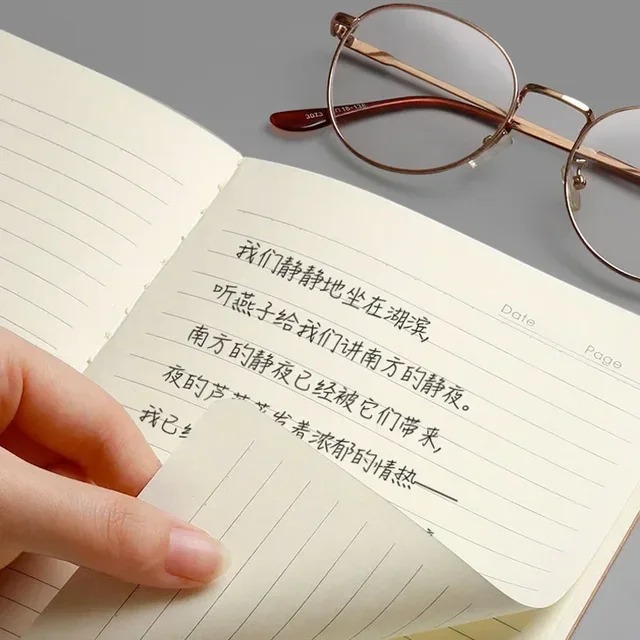 我们静静地坐在湖滨,
听燕子给我们讲南方的静夜。
南方的静夜已经被它们带来,
夜的芦苇蒸发着浓郁的情热——
我已经
Date
Page